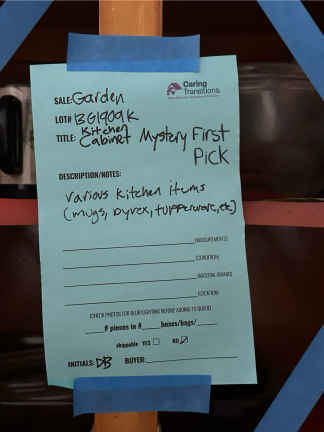 Caring
Transitions
SALE: Garden
LOT# BG1909K
TITLE: Kitchen
Cabinet Mystery First
Pick
DESCRIPTION/NOTES:
various kitchen items
(mugs, pyrex, tupperware, etc)
(MEASUREMENTS)
(CONDITION)
(MATERIAL/BRAND)
(LOCATION)
(CHECK PHOTOS FOR BLUR/LIGHTING BEFORE ADDING TO QUEUE)
# pieces in # boxes/bags/
shippable YES NO
INITIALS: DB BUYER: